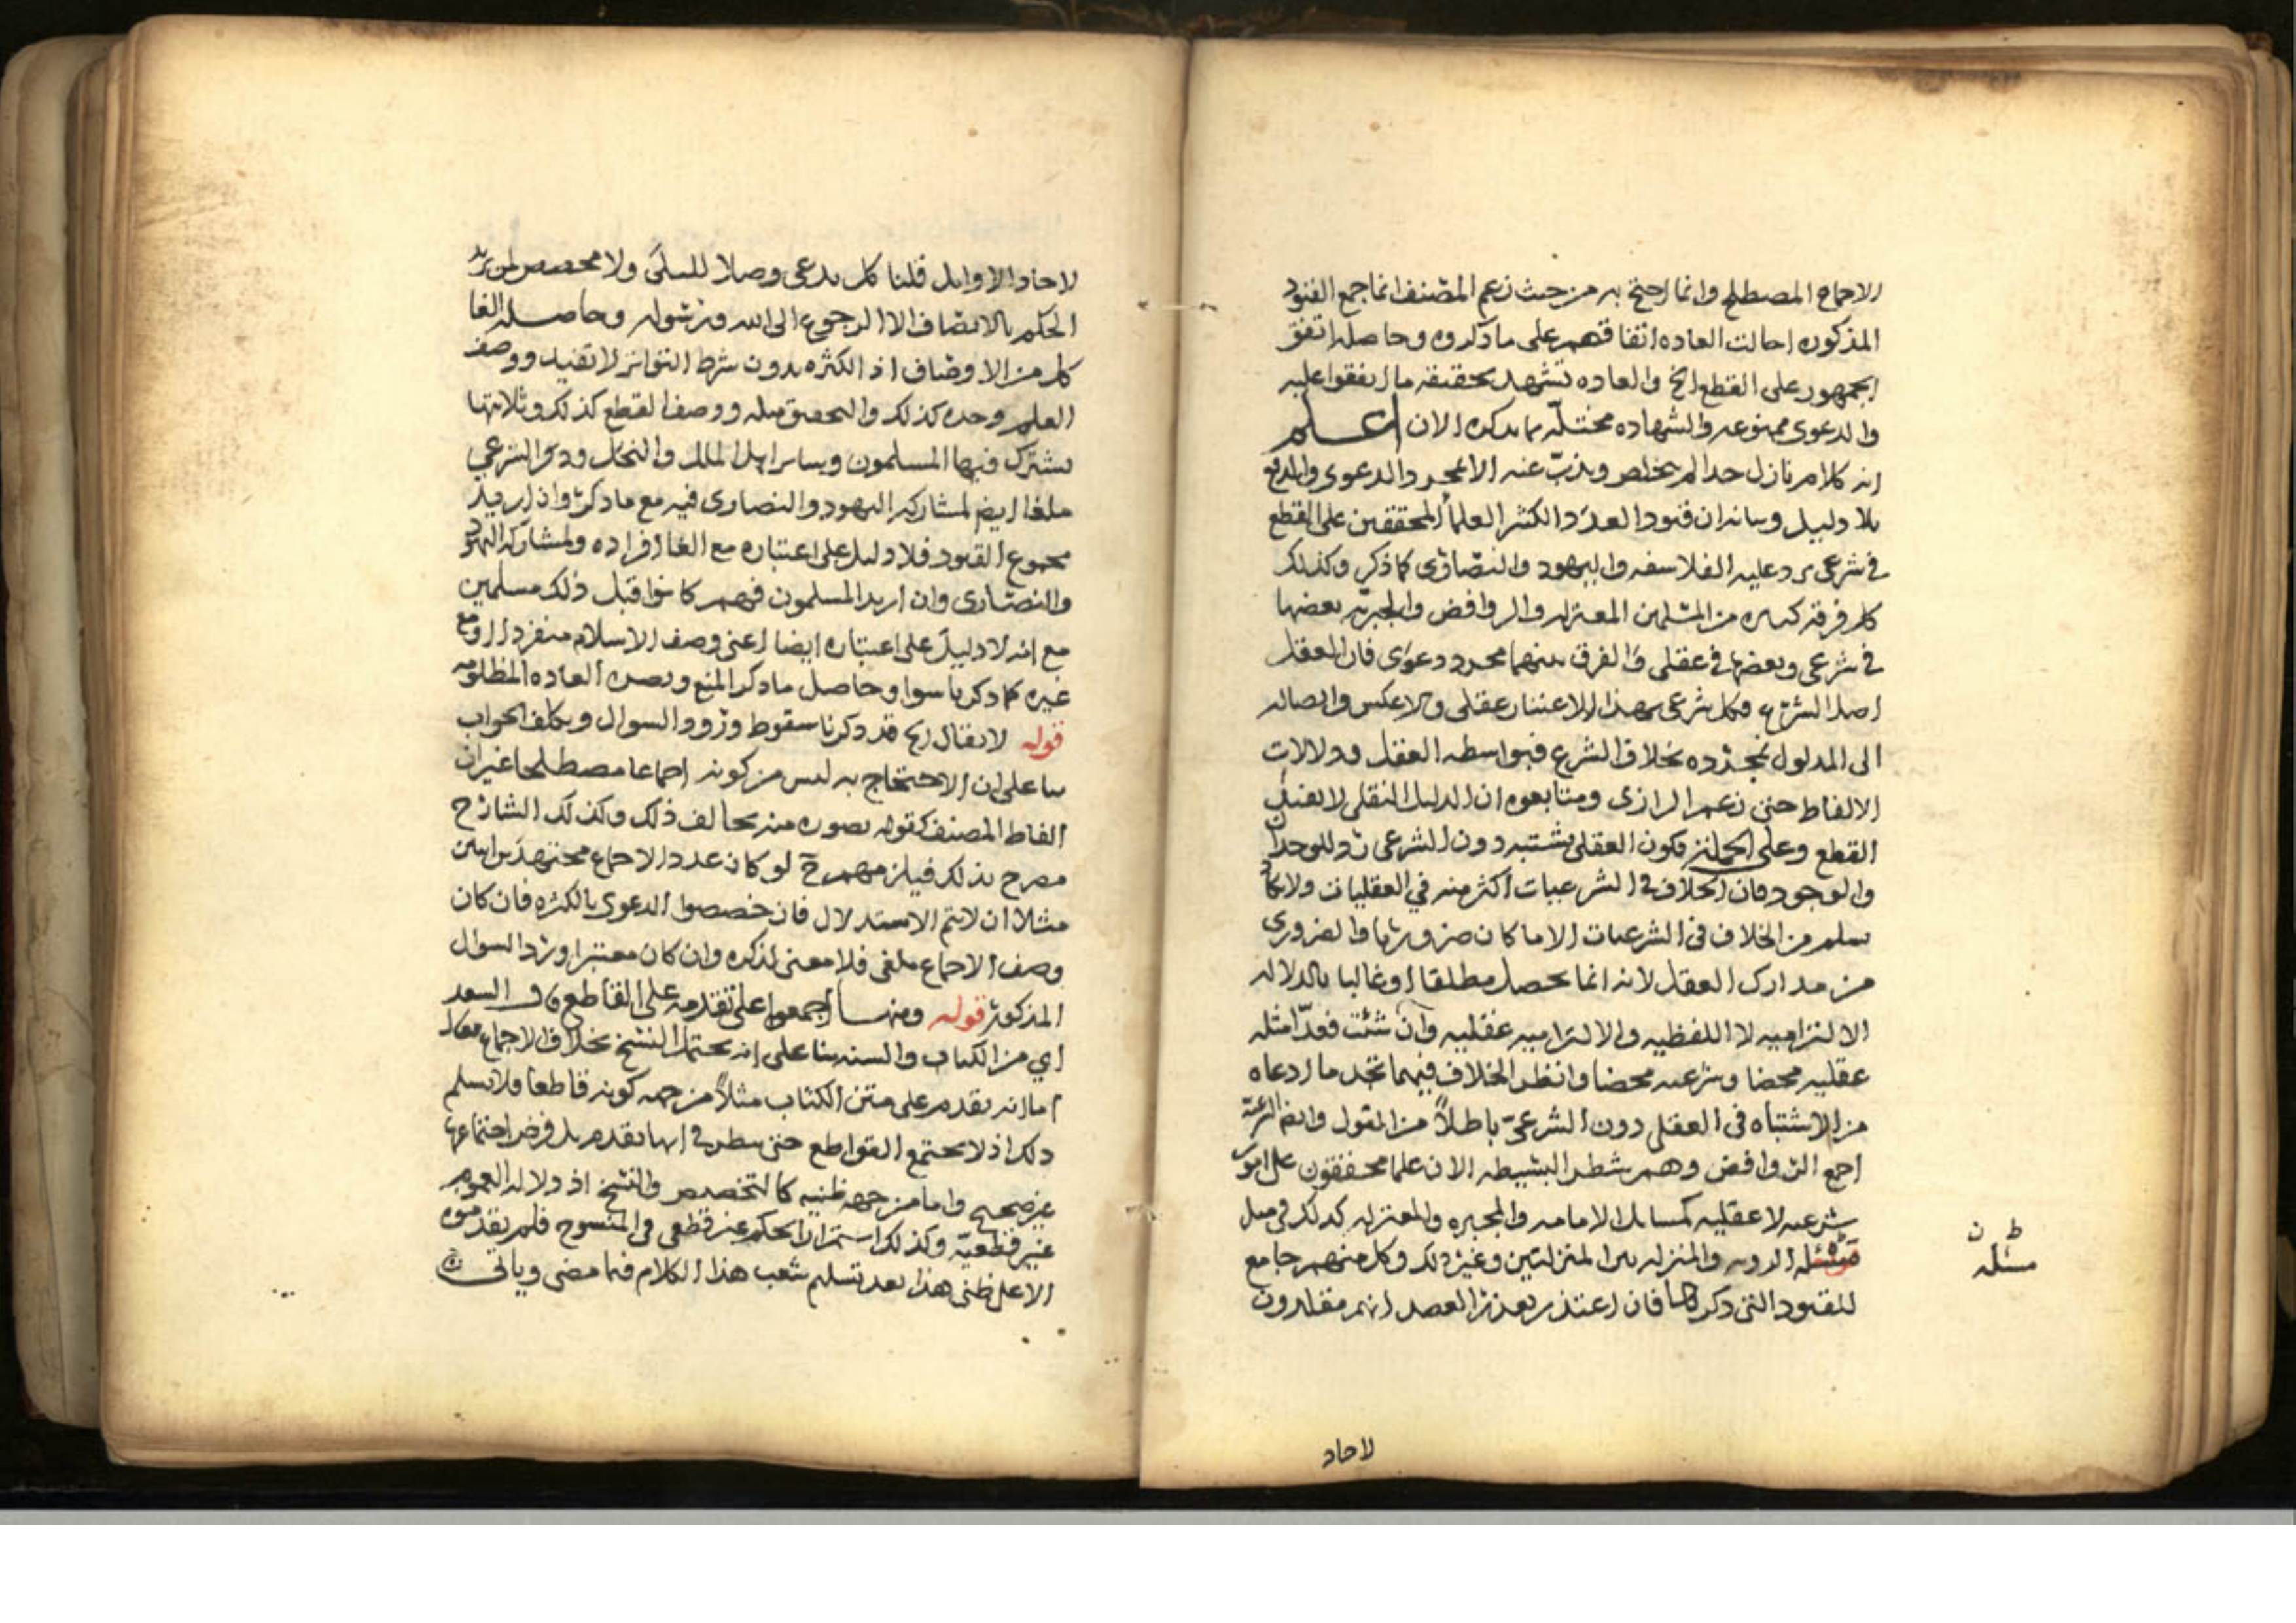 الاجماع المصطلح وانما احتج به من حيث زعم المصنف انما جمع القيود
المذكوره احالت العاده اتفاقهم على ما ذكروه وحاصله اتفق
الجمهور على القطع الخ والعاده تشهد بحقيقه ما اتفقوا عليه
والدعوى ممنوعه والشهاده مختلّه بما يذكره الان اعلم
انه كلام نازل جدا لم يتخلص ويذبّ عنه الا بمجرد الدعوى والدفع
بلا دليل وبيانه ان قيود العدد الكثير العلما المحققين على القطع
في شرعي يرد عليه الفلاسفه واليهود والنصارى كما ذكر وكذلك
كل فرقه كبيره من المسلمين المعتزله والروافض والجبريه بعضها
في شرعي وبعضها في عقلي والفرق بينهما مجرد دعوى فان العقل
اصل الشرع فكل شرعي بهذا الاعتبار عقلي ولا عكس وايصاله
الى المدلول بمجرده بخلاف الشرع فبواسطه العقل ودلالات
الالفاظ حتى زعم الرازي ومتابعوه ان الدليل النقلي لا يفيد
القطع وعلى الجمله فكون العقلي يشتبه دون الشرعي رد للوجدان
والوجود فان الخلاف في الشرعيات اكثر منه في العقليات ولا يكاد
يسلم من الخلاف في الشرعيات الا ما كان ضروريا والضروري
من مدارك العقل لانه انما يحصل مطلقا او غالبا بالدلاله
الالتزاميه لا اللفظيه والالتزاميه عقليه وان شئت فعدّ امثله
عقليه محضا وشرعيه محضا وانظر الخلاف فيهما تجد ما ادعاه
من الاشتباه في العقلي دون الشرعيّ باطلاً من القول وايضا
اجمع الروافض وهم شطر البسيطه الان علما محققون على امور
شرعيه لا عقليه كمسايل الامامه والمجبره والمعتزله كذلك في مثل
مسئله الرويه والمنزله بين المنزلتين وغير ذلك وكل منهم جامع
للقيود التي ذكرها فان اعتذر بعذر العضد انهم مقلدون
ط ن
مسئله
لاحاد
لاحاد الاوايل قلنا كل يدعي وصلا لليلى ولا مخصص لمن يريد
الحكم بالانصاف الا الرجوع الى الله ورسوله وحاصله الغا
كل من الاوصاف اذ الكثره بدون شرط التواتر لا تفيد ووصف
العلم وحده كذلك والتحقيق مثله ووصف القطع كذلك وثلاثتها
يشترك فيها المسلمون وساير اهل الملل والنحل وذكر الشرعي
ملغا ايضا لمشاركه اليهود والنصارى فيه مع ما ذكر وان اريد
مجموع القيود فلا دليل على اعتباره مع الغا افراده ولمشاركه اليهود
والنصارى وان اريد المسلمون فهم كانوا قبل ذلك مسلمين
مع انه لا دليل على اعتباره ايضا اعني وصف الاسلام منفردا او مع
غيره كما ذكرنا سوا وحاصل ما ذكر المنع وبصره العاده المظلومه
قوله لا يقال الخ قد ذكرنا سقوط ورود السوال وتكلف الجواب
بنا على ان الاحتجاج به ليس من كونه اجماعا مصطلحا غير ان
الفاظ المصنف كقوله بصوره منه تخالف ذلك وكذلك الشارح
مصرح بذلك فيلزمهم ح لو كان عدد الاجماع مجتهدين اثنين
مثلا ان لا يتم الاستدلال فان خصصوا الدعوى بالكثره فان كان
وصف الاجماع ملغى فلا معنى لذكره وان كان معتبرا ورد السوال
المذكور قوله ومنها اجمعوا على تقدمه على القاطع ن في السعد
اي من الكتاب والسنه بنا على انه يحتمل النسخ بخلاف الاجماع
اما انه يقدم على متن الكتاب مثلاً من جهه كونه قاطعا فلا نسلم
ذلك اذ لا يجتمع القواطع حتى ينظر في ايها يقدم بل فرض اجتماعها
غير صحيح واما من جهه ظنيه كالتخصيص والنسخ اذ دلاله العموم
غير قطعيّه وكذلك استمرار الحكم غير قطعي في المنسوخ فلم يقدموه
الا على ظني هذا بعد تسليم شعب هذا الكلام فيما مضى وياتي ن